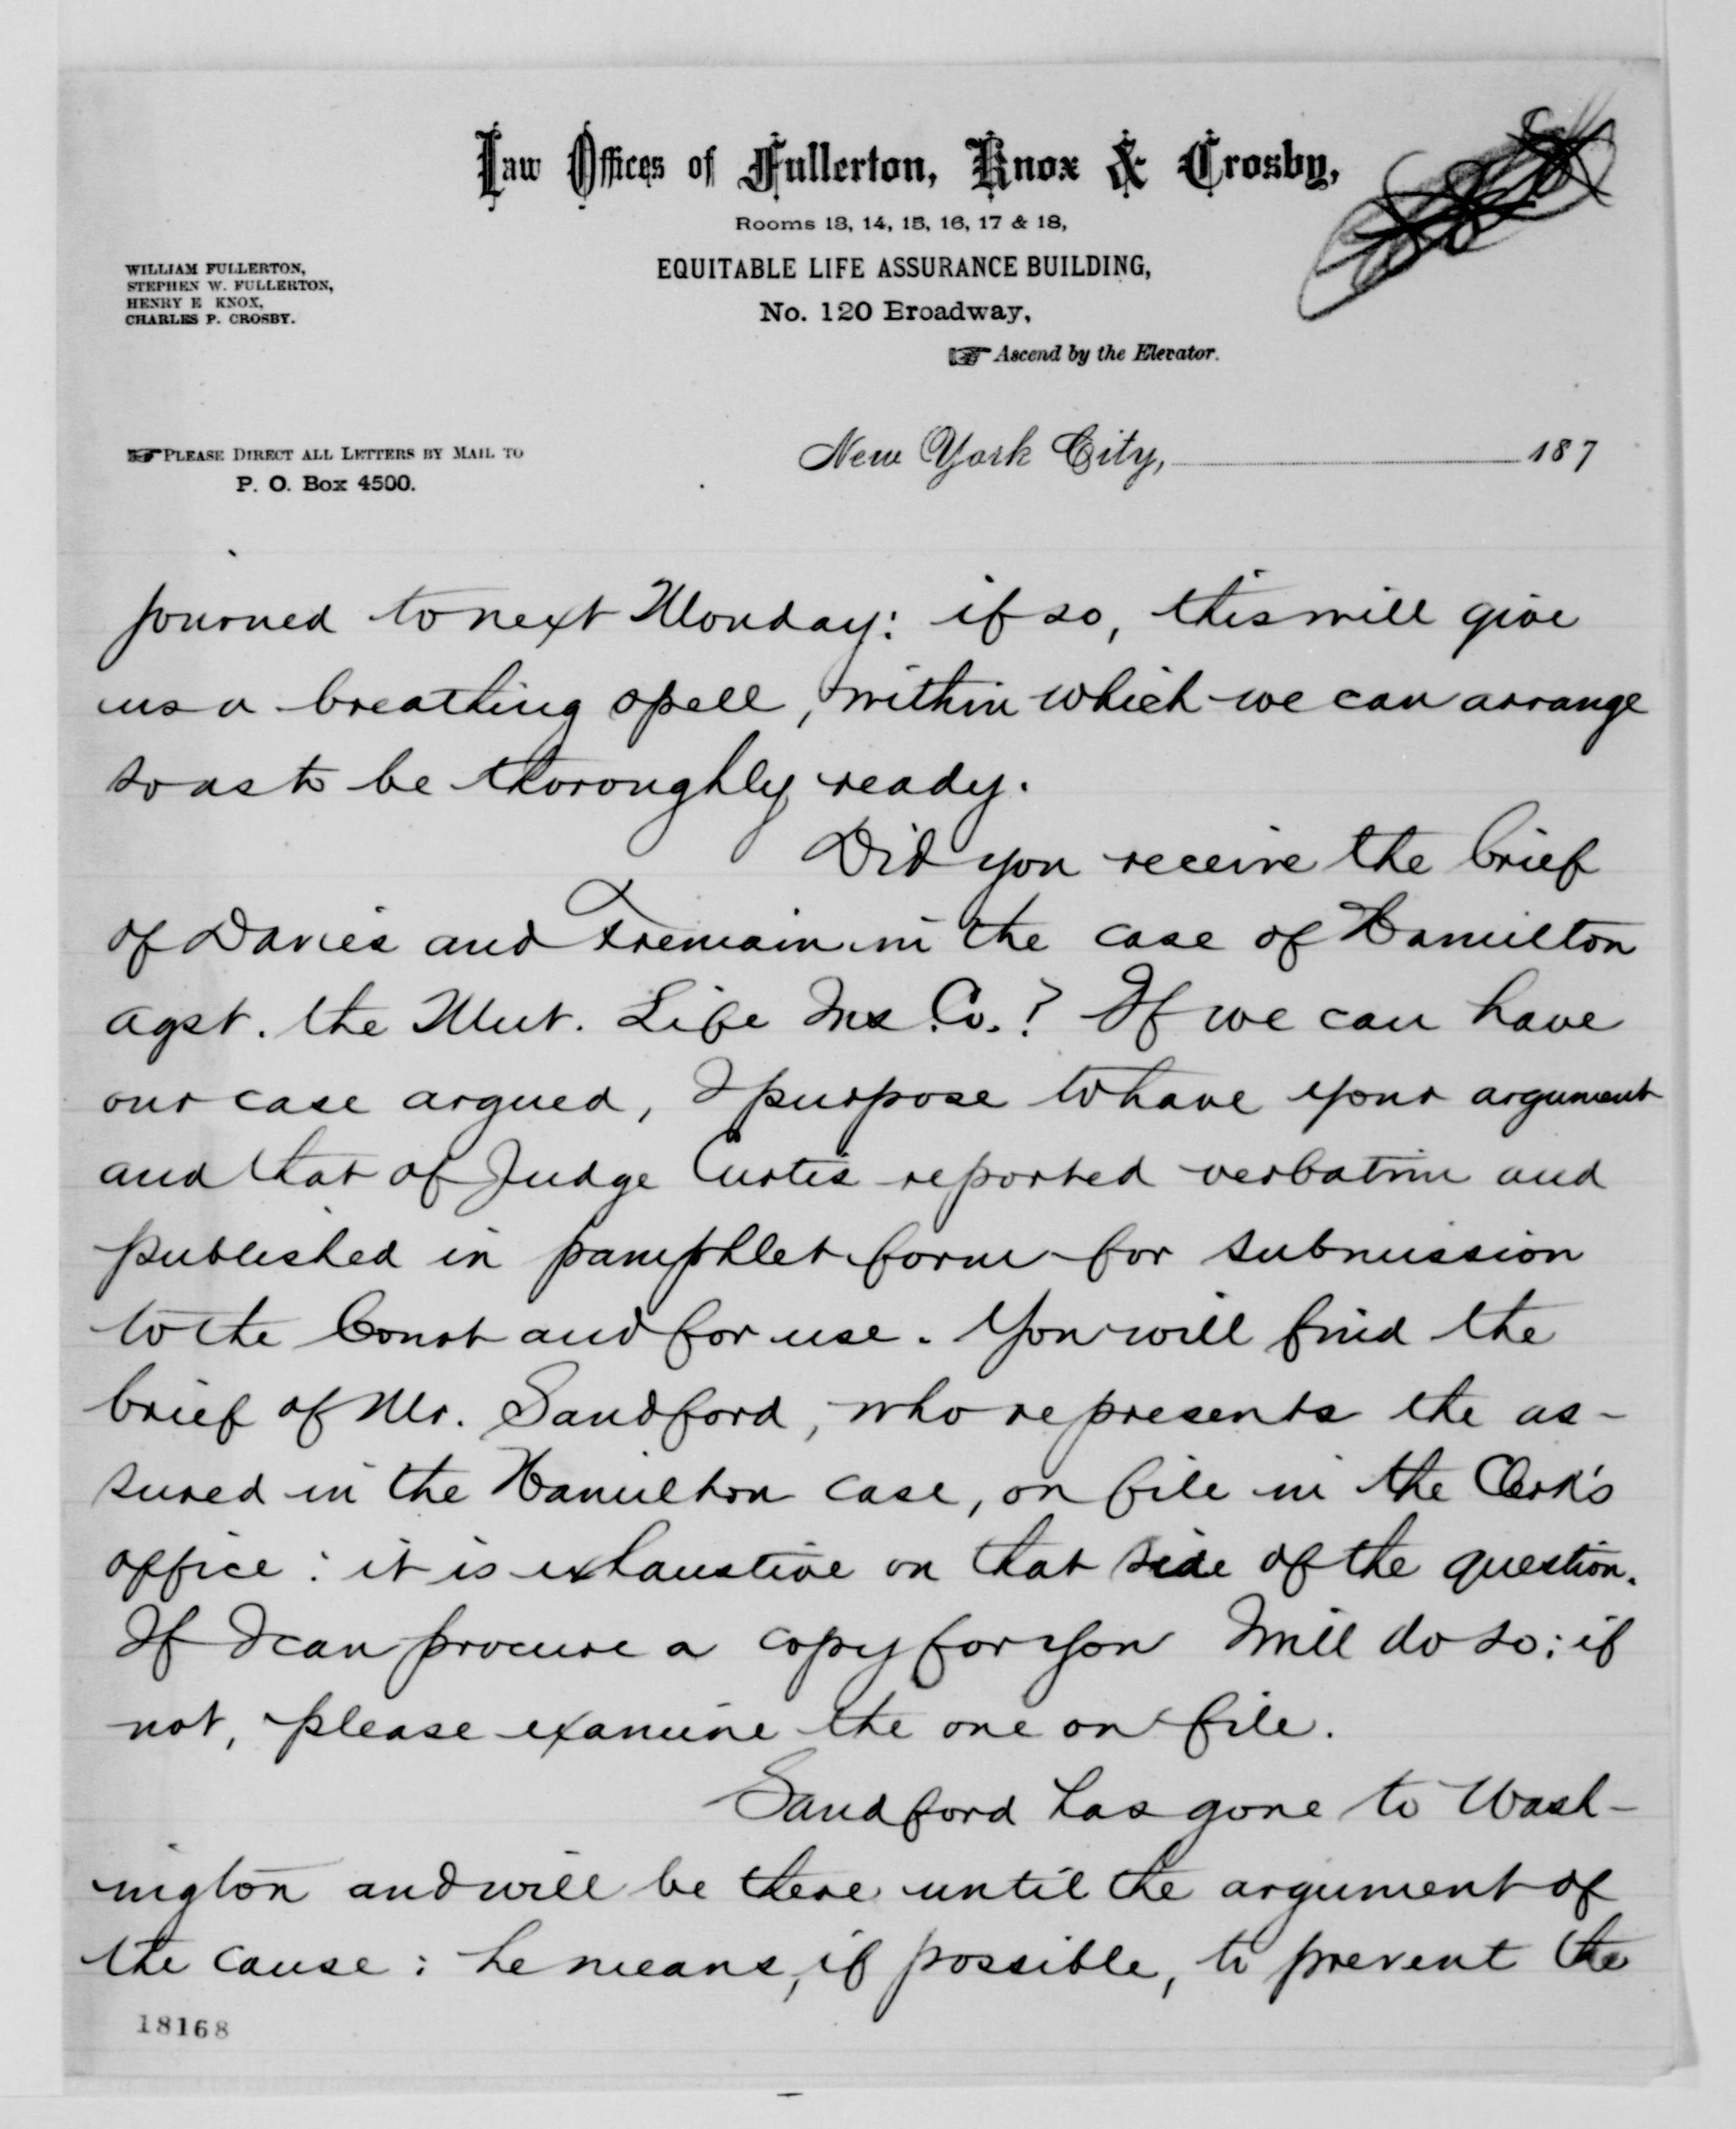 Law Offices of Fullerton, Knox & Crosby,
Rooms 13, 14, 15, 16, 17 & 18,
EQUITABLE LIFE ASSURANCE BUILDING,
No. 120 Broadway,
Ascend by the Elevator.
WILLIAM FULLERTON,
STEPHEN W. FULLERTON,
HENRY E KNOX,
CHARLES P. CROSBY.
PLEASE DIRECT ALL LETTERS BY MAIL TO
P. O. Box 4500.
New York City, 187
journed to next Monday: if so, this will give
us a breathing spell, within which we can arrange
so as to be thoroughly ready.
Did you receive the brief
of Davies and Tremain in the case of Hamilton
agst. the Mut. Life Ins Co.? If we can have
our case argued, I purpose to have your argument
and that of Judge Curtis reported verbatim and
published in pamphlet form for submission
to the Court and for use. You will find the
brief of Mr. Sandford, who represents the as-
sured in the Hamilton case, on file in the Clerk's
office: it is exhaustive on that side of the question.
If I can procure a copy for you I will do so: if
not, please examine the one on file.
Sandford has gone to Wash-
ington and will be there until the argument of
the cause: he means, if possible, to prevent the
18168